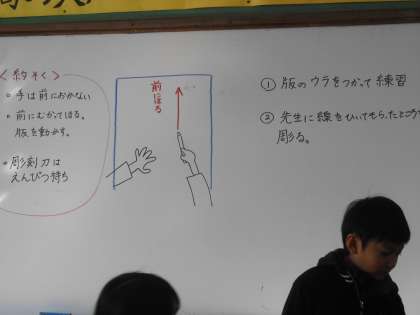 ＜約そく＞
・手は前におかない
・前にむかってほる。
版を動かす。
・彫刻刀は
えんぴつ持ち
前
ほる
① 版のウラをつかって練習
② 先生に線をひいてもらったところ
彫る。